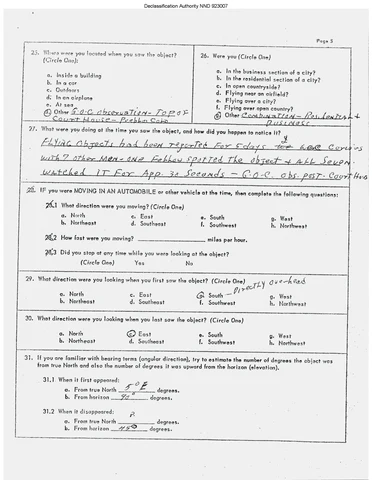 Declassification Authority NND 923007
Page 5
25. Where were you located when you saw the object?
(Circle One):
a. Inside a building
b. In a car
c. Outdoors
d. In an airplane
e. At sea
f. Other G.O.C. Observation - Top of
Court House -
26. Were you (Circle One)
a. In the business section of a city?
b. In the residential section of a city?
c. In open countryside?
d. Flying near an airfield?
e. Flying over a city?
f. Flying over open country?
g. Other Combination - Residential &
Business
27. What were you doing at the time you saw the object, and how did you happen to notice it?
Flying objects had been reported for 5 days
with 7 other men - one fellow spotted the object & all seven
watched it for app. 30 seconds - G.O.C. obs. post - Court House
28. IF you were MOVING IN AN AUTOMOBILE or other vehicle at the time, then complete the following questions:
28.1 What direction were you moving? (Circle One)
a. North c. East e. South g. West
b. Northeast d. Southeast f. Southwest h. Northwest
28.2 How fast were you moving? miles per hour.
28.3 Did you stop at any time while you were looking at the object?
(Circle One) Yes No
29. What direction were you looking when you first saw the object? (Circle One) Directly overhead
a. North c. East e. South g. West
b. Northeast d. Southeast f. Southwest h. Northwest
30. What direction were you looking when you last saw the object? (Circle One)
a. North c. East e. South g. West
b. Northeast d. Southeast f. Southwest h. Northwest
31. If you are familiar with bearing terms (angular direction), try to estimate the number of degrees the object was
from true North and also the number of degrees it was upward from the horizon (elevation).
31.1 When it first appeared:
a. From true North degrees.
b. From horizon 90° degrees.
31.2 When it disappeared:
a. From true North degrees.
b. From horizon 45° degrees.